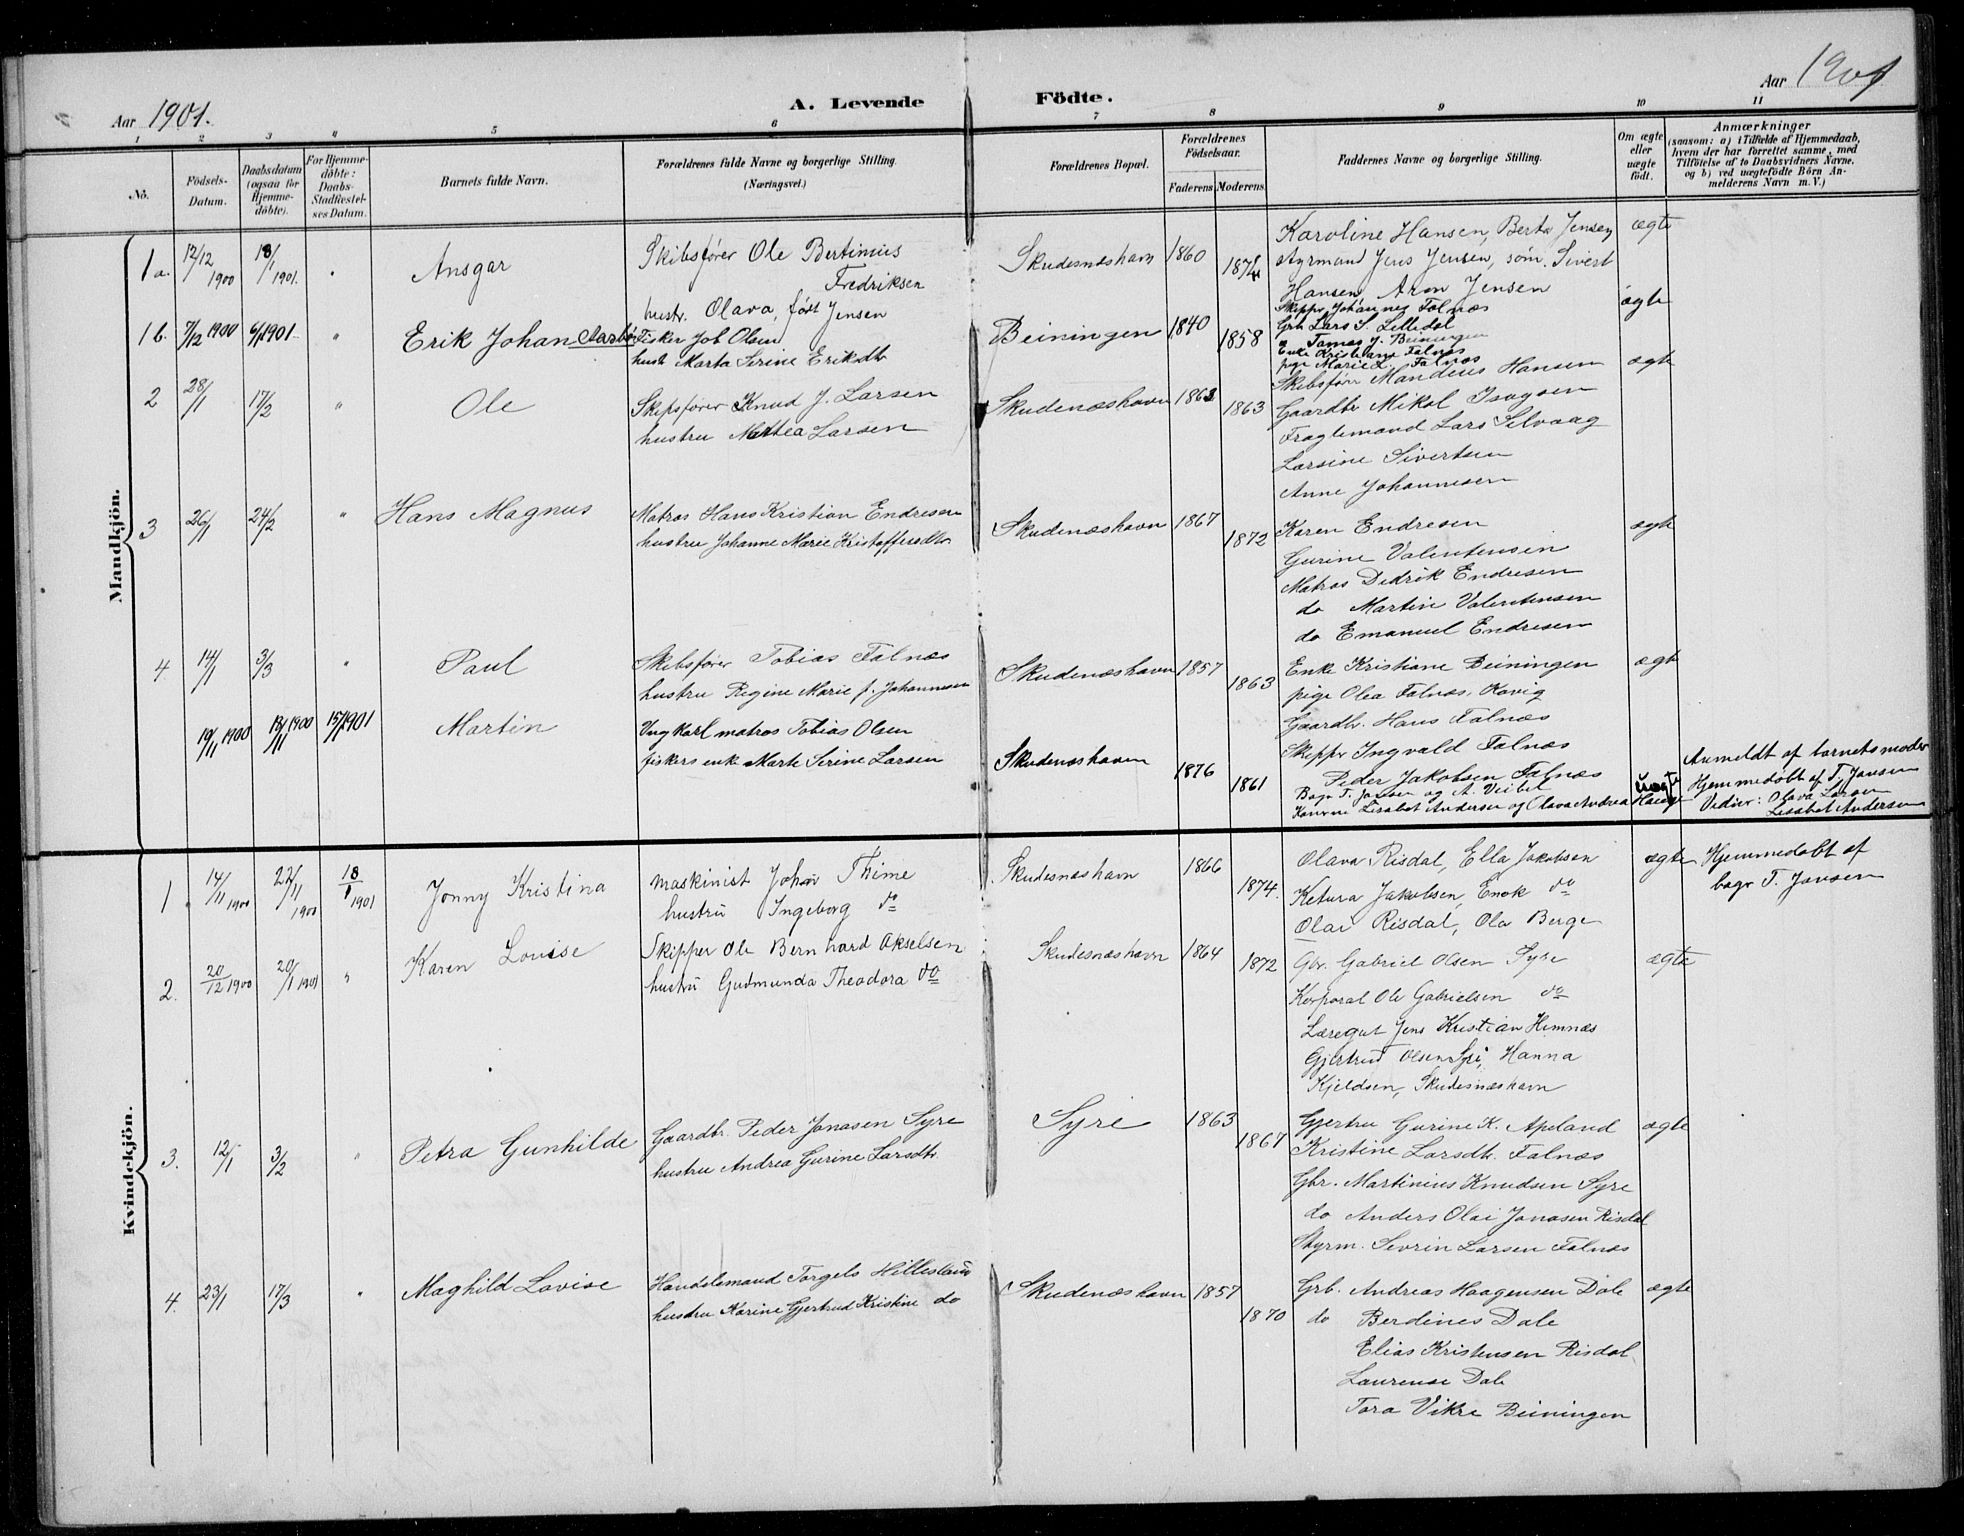 Aar 1901.
A. Levende Födte.
Aar 1901
1 2 3 4 5 6 7 8 9 10 11
No.
Födsels-Datum.
Daabsdatum (ogsaa for Hjemmedöbte).
For Hjemmedöbte: Daabs-Stadfestelses Datum.
Barnets fulde Navn.
Forældrenes fulde Navne og borgerlige Stilling. (Næringsvei.)
Forældrenes Bopæl.
Forældrenes Födselsaar.
Faderens Moderens
Faddernes Navne og borgerlige Stilling.
Om ægte eller uægte födt.
Anmærkninger
(saasom: a) i Tilfælde af Hjemmedaab, hvem der har forrettet samme, med Tilföielse af to Daabsvidners Navne. og b) ved uægtefödte Börn Anmelderens Navn m. V.)
Mandkjön.
1 a. 12/12 1900 13/1 1901. " Ansgar
Skibsfører Ole Bertinius
Fredriksen
hustr. Olava, født Jensen
Skudesnæshavn 1860 1874
Karoline Hansen, Berta Jensen
Jens Jensen, søm. Sivert
Hansen, Aron Jensen
ægte
1 b. 7/12 1900 6/1 1901 " Erik Johan Aarbø
Fisker Job Olsen
hustr Marta Serine Eriksdtr
Beiningen 1840 1858
Skipper Johannes Falnæs
Grb Lars S. Lillidal
Tomas J. Beiningen
Enke Kristiane Falnæs
pige Marie L. Falnæs
ægte
2 28/1 17/2 " Ole
Skipsfører Knud J. Larsen
hustru Mattea Larsen
Skudenæshavn 1862 1863
Skibsfører Mandius Hansen
Gaardbr Mikal Isagsen
Fragtemand Lars Silvaag
Larsine Sivertsen
Anne Johannesen
ægte
3 26/1 24/2 " Hans Magnus
Matros Hans Kristian Endresen
hustru Johanne Marie Kristoffersdtr
Skudenæshavn 1867 1872
Karen Endresen
Gurine Valentensen
Matros Dedrik Endresen
do Martin Valentensen
do Emanuel Endresen
ægte
4 14/1 3/3 " Paul
Skibsfører Tobias Falnæs
hustru Regine Marie f. Johannesen
Skudenæshavn 1857 1863
Enke Kristiane Beiningen
pige Olea Falnæs,
Gaardbr. Hans Falnæs
Skipper Ingvald Falnæs
Peder Jakobsen Falnæs
ægte
19/11 1900 19/11 1900 15/1 1901 Martin
Ungkarl matros Tobias Olsen
fiskers enke Marte Serine Larsen
Skudenæshavn 1876 1861
Bagr T. Jansen og A. Veibel
Konerne Lisabet Andersen og Olava Andrea Hauge
uægte
Anmeldt af barnets moder
Hjemmedøbt af T. Jansen
Vidner: Olava Larsen
Lisabet Andersen
Kvindekjön.
1 14/11 1900 22/11 1900 18/1 1901 Jonny Kristina
Maskinist Johan Thime
hustru Ingeborg do
Skudesnæshavn 1866 1874.
Olava Risdal, Ella Jakobsen
Ketura Jakobsen, Enok do
Olai Risdal, Ola Berge
ægte
Hjemmedøbt af
bagr T. Jansen
2. 20/12 1900 20/1 1901 " Karen Lovise
Skipper Ole Bernhard Akselsen
hustru Gudmunda Theodora do
Skudesnæshavn 1864 1872
Gbr. Gabriel Olsen Syre
Korporal Ole Gabrielsen do
Læregut Jens Kristian Hemnæs
Gjertrud Olsen Syre, Hanna
Kjeldsen, Skudesnæshavn
ægte
3. 12/1 3/2 " Petra Gunhilde
Gaardbr. Peder Jonasen Syre
hustru Andrea Gurine Larsdtr.
Syre 1863 1867
Gjertru Gurine K. Apeland
Kristine Larsdtr. Falnæs
Gbr. Martinius Knudsen Syre
do Anders Olai Jonasen Risdal
Styrm. Sevrin Larsen Falnæs
ægte
4. 23/1 17/3 " Maghild Lovise
Handelsmand Torgels Hillesland
hustru Karine Gjertrud Kristine do
Skudenæshavn 1857 1870
Grb. Andreas Haagensen Dale
do Berdines Dale
Elias Kristensen Risdal
Laurense Dale
Tora Vikre Beiningen
ægte